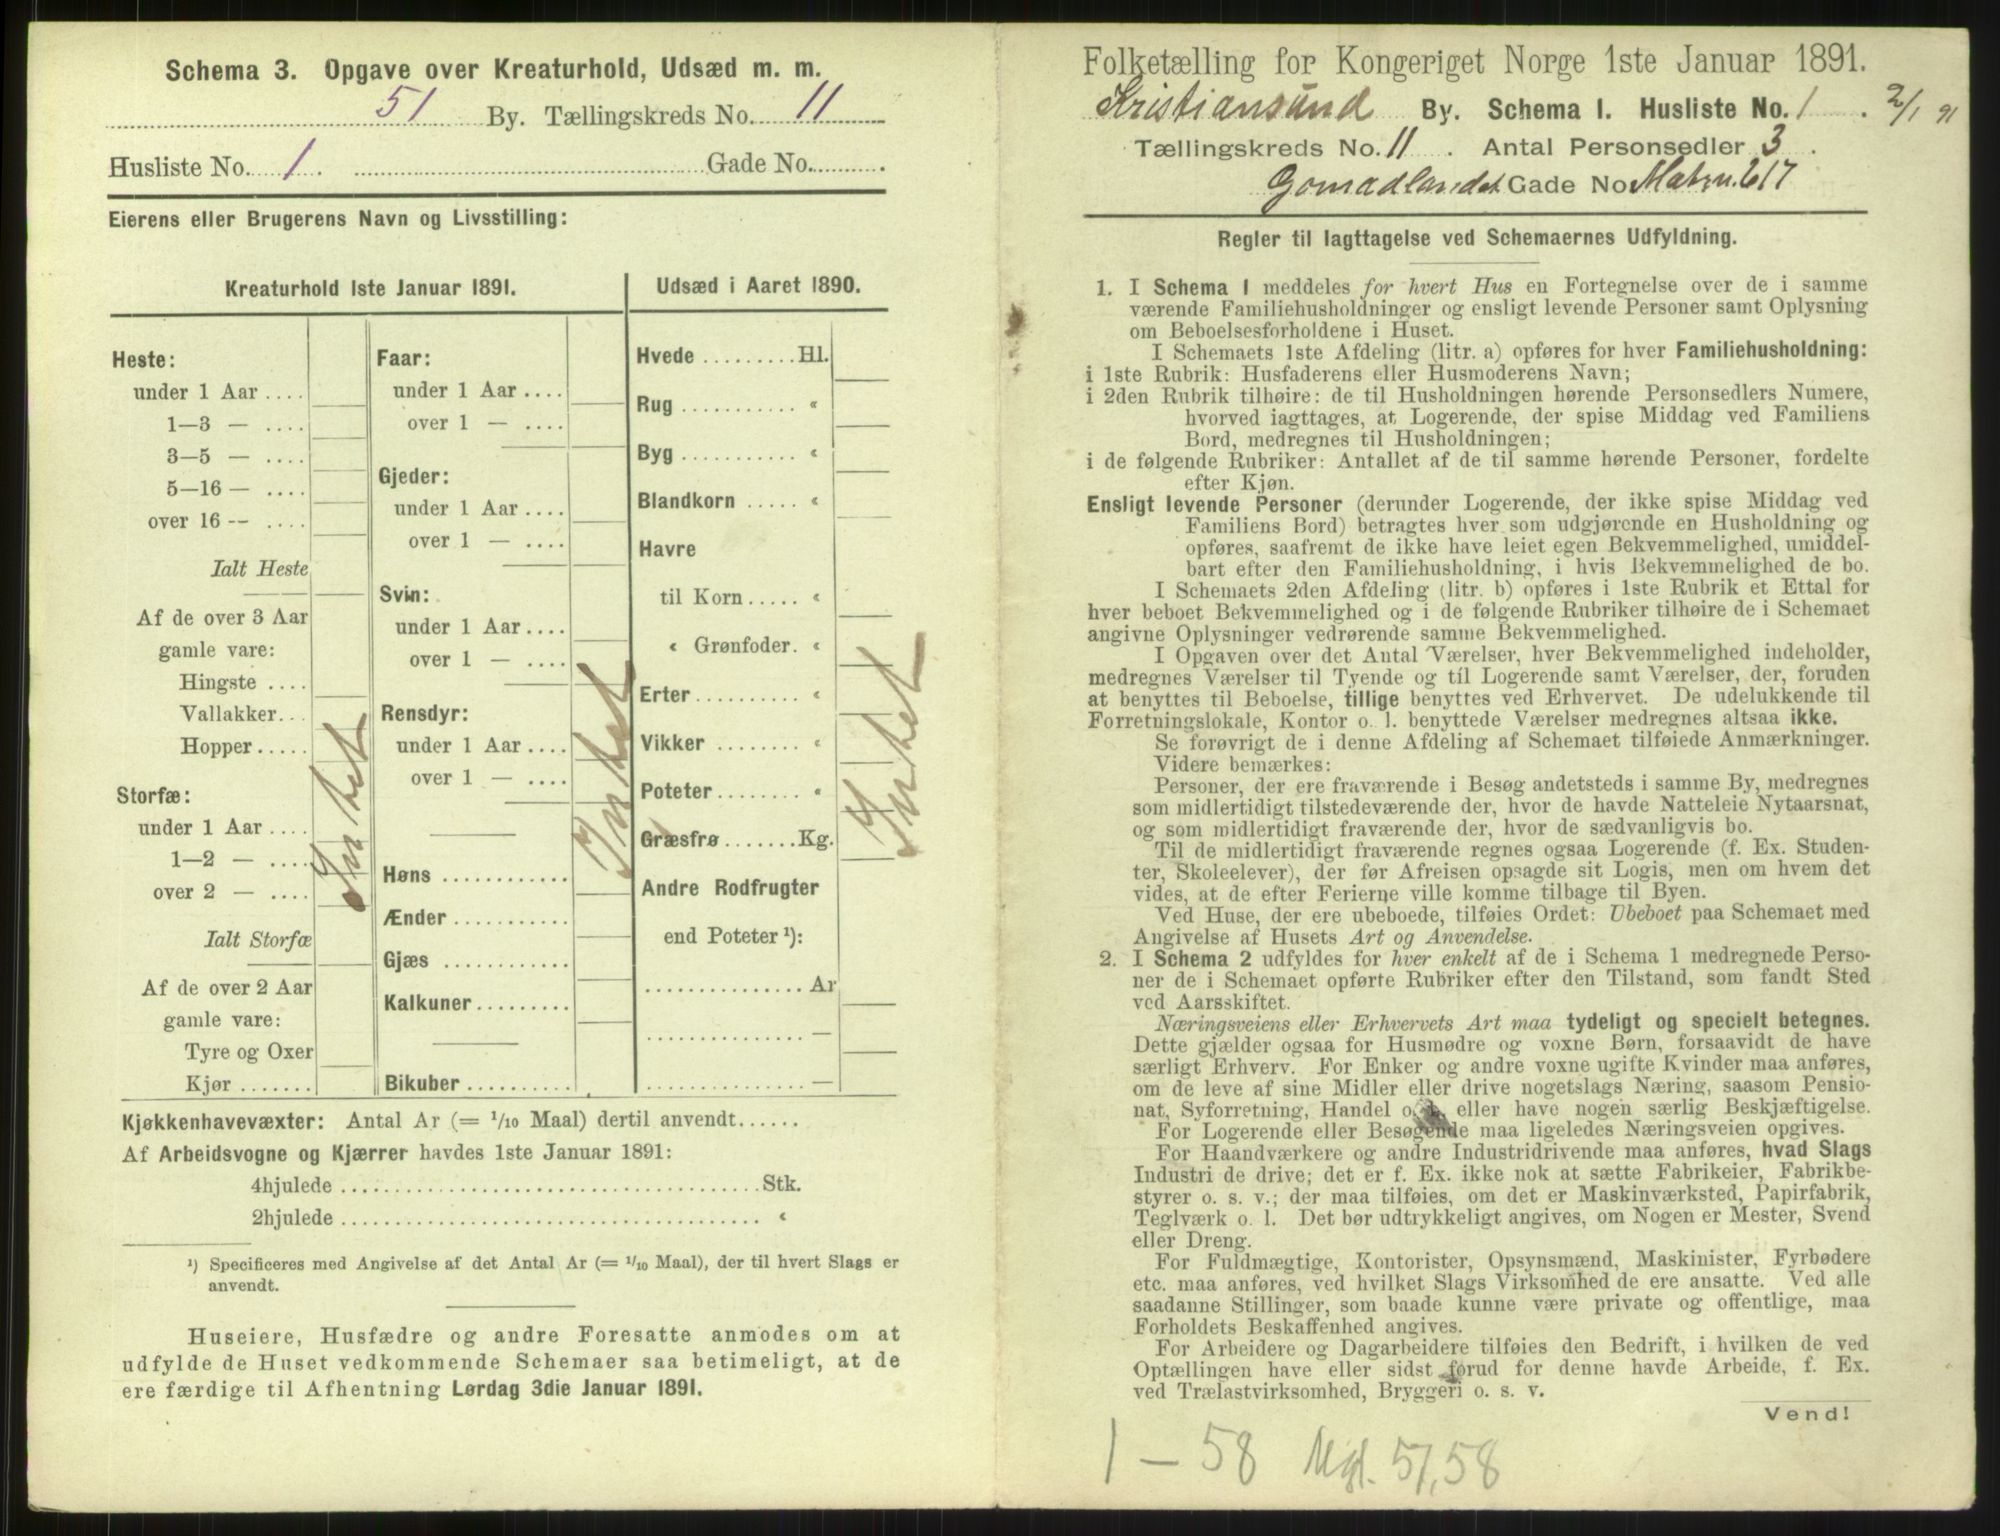 Schema 3. Opgave over Kreaturhold, Udsæd m. m.
51 By. Tællingskreds No. 11
Husliste No. 1. Gade No.
Eierens eller Brugerens Navn og Livsstilling:
Kreaturhold 1ste Januar 1891.
Heste:
under 1 Aar ....
1—3 — ....
3—5 — ....
5—16 — ....
over 16 -- ....
Ialt Heste
Af de over 3 Aar
gamle vare:
Hingste ....
Vallakker...
Hopper.....
Storfæ:
under 1 Aar ....
1—2 — ....
over 2 — ....
Ialt Storfæ
Af de over 2 Aar
gamle vare:
Tyre og Oxer
Kjør .......
Intet
Faar:
under 1 Aar ....
over 1 — ....
Gjeder:
under 1 Aar ....
over 1 — ....
Svin:
under 1 Aar ....
over 1 — ....
Rensdyr:
under 1 Aar ....
over 1 — ....
Høns ............
Ænder ...........
Gjæs ............
Kalkuner.........
Bikuber ..........
Intet
Udsæd i Aaret 1890.
Hvede .........Hl.
Rug ........... «
Byg ........... «
Blandkorn ..... «
Havre
til Korn..... «
« Grønfoder. «
Erter .......... «
Vikker ........ «
Poteter ........ «
Græsfrø .......Kg.
Andre Rodfrugter
end Poteter ¹):
............... Ar
............... —
............... —
Intet
Kjøkkenhavevæxter: Antal Ar (= ¹/₁₀ Maal) dertil anvendt......
Af Arbeidsvogne og Kjærrer havdes 1ste Januar 1891:
4hjulede ........................................Stk.
2hjulede ........................................ «
¹) Specificeres med Angivelse af det Antal Ar (= ¹/₁₀ Maal), der til hvert Slags er
anvendt.
Huseiere, Husfædre og andre Foresatte anmodes om at
udfylde de Huset vedkommende Schemaer saa betimeligt, at de
ere færdige til Afhentning Lørdag 3die Januar 1891.
Folketælling for Kongeriget Norge 1ste Januar 1891.
Kristiansund By. Schema I. Husliste No. 1. 2/1 91
Tællingskreds No. 11. Antal Personsedler 3.
Gomadlandet Gade No Matrn. 617
Regler til Iagttagelse ved Schemaernes Udfyldning.
1. I Schema 1 meddeles for hvert Hus en Fortegnelse over de i samme
værende Familiehusholdninger og ensligt levende Personer samt Oplysning
om Beboelsesforholdene i Huset.
I Schemaets 1ste Afdeling (litr. a) opføres for hver Familiehusholdning:
i 1ste Rubrik: Husfaderens eller Husmoderens Navn;
i 2den Rubrik tilhøire: de til Husholdningen hørende Personsedlers Numere,
hvorved iagttages, at Logerende, der spise Middag ved Familiens
Bord, medregnes til Husholdningen;
i de følgende Rubriker: Antallet af de til samme hørende Personer, fordelte
efter Kjøn.
Ensligt levende Personer (derunder Logerende, der ikke spise Middag ved
Familiens Bord) betragtes hver som udgjørende en Husholdning og
opføres, saafremt de ikke have leiet egen Bekvemmelighed, umiddel-
bart efter den Familiehusholdning, i hvis Bekvemmelighed de bo.
I Schemaets 2den Afdeling (litr. b) opføres i 1ste Rubrik et Ettal for
hver beboet Bekvemmelighed og i de følgende Rubriker tilhøire de i Schemaet
angivne Oplysninger vedrørende samme Bekvemmelighed.
I Opgaven over det Antal Værelser, hver Bekvemmelighed indeholder,
medregnes Værelser til Tyende og til Logerende samt Værelser, der, foruden
at benyttes til Beboelse, tillige benyttes ved Erhvervet. De udelukkende til
Forretningslokale, Kontor o. l. benyttede Værelser medregnes altsaa ikke.
Se forøvrigt de i denne Afdeling af Schemaet tilføiede Anmærkninger.
Videre bemærkes:
Personer, der ere fraværende i Besøg andetsteds i samme By, medregnes
som midlertidigt tilstedeværende der, hvor de havde Natteleie Nytaarsnat,
og som midlertidigt fraværende der, hvor de sædvanligvis bo.
Til de midlertidigt fraværende regnes ogsaa Logerende (f. Ex. Studen-
ter, Skoleelever), der før Afreisen opsagde sit Logis, men om hvem det
vides, at de efter Ferierne ville komme tilbage til Byen.
Ved Huse, der ere ubeboede, tilføies Ordet: Ubeboet paa Schemaet med
Angivelse af Husets Art og Anvendelse.
2. I Schema 2 udfyldes for hver enkelt af de i Schema 1 medregnede Perso-
ner de i Schemaet opførte Rubriker efter den Tilstand, som fandt Sted
ved Aarsskiftet.
Næringsveiens eller Erhvervets Art maa tydeligt og specielt betegnes.
Dette gjælder ogsaa for Husmødre og voxne Børn, forsaavidt de have
særligt Erhverv. For Enker og andre voxne ugifte Kvinder maa anføres,
om de leve af sine Midler eller drive nogetslags Næring, saasom Pensio-
nat, Syforretning, Handel o. l. eller have nogen særlig Beskjæftigelse.
For Logerende eller Besøgende maa ligeledes Næringsveien opgives.
For Haandværkere og andre Industridrivende maa anføres, hvad Slags
Industri de drive; det er f. Ex. ikke nok at sætte Fabrikeier, Fabrikbe-
styrer o. s. v.; der maa tilføies, om det er Maskinværksted, Papirfabrik,
Teglværk o. l. Det bør udtrykkeligt angives, om Nogen er Mester, Svend
eller Dreng.
For Fuldmægtige, Kontorister, Opsynsmænd, Maskinister, Fyrbødere
etc. maa anføres, ved hvilket Slags Virksomhed de ere ansatte. Ved alle
saadanne Stillinger, som baade kunne være private og offentlige, maa
Forholdets Beskaffenhed angives.
For Arbeidere og Dagarbeidere tilføies den Bedrift, i hvilken de ved
Optællingen have eller sidst forud for denne havde Arbeide, f. Ex.
ved Trælastvirksomhed, Bryggeri o. s. v.
Vend!
1 – 58 Mgl. 57,58